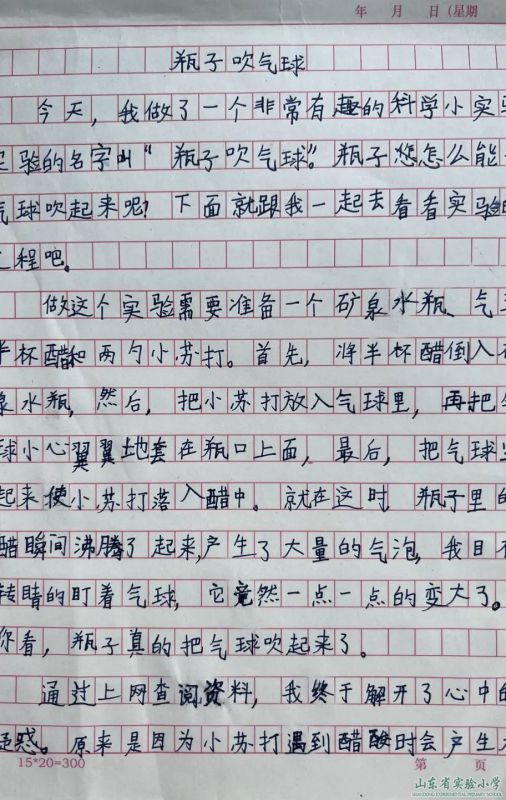 年 月 日(星期
瓶子吹气球
今天,我做了一个非常有趣的科学小实验
实验的名字叫“瓶子吹气球”。瓶子您怎么能
气球吹起来呢?下面就跟我一起去看看实验的
过程吧。
做这个实验需要准备一个矿泉水瓶、气
半杯醋和两勺小苏打。首先,将半杯醋倒入
泉水瓶,然后,把小苏打放入气球里,再把
球小心翼翼地套在瓶口上面,最后,把气球
起来使小苏打落入醋中。就在这时 瓶子里的
醋瞬间沸腾了起来,产生了大量的气泡,我目
转睛的盯着气球,它竟然一点一点的变大了。
你看,瓶子真的把气球吹起来了。
通过上网查阅资料,我终于解开了心中的
疑惑。原来是因为小苏打遇到醋酸时会产生
15*20=300 第 页
山东省实验小学
SHANDONG EXPERIMENTAL PRIMARY SCHOOL